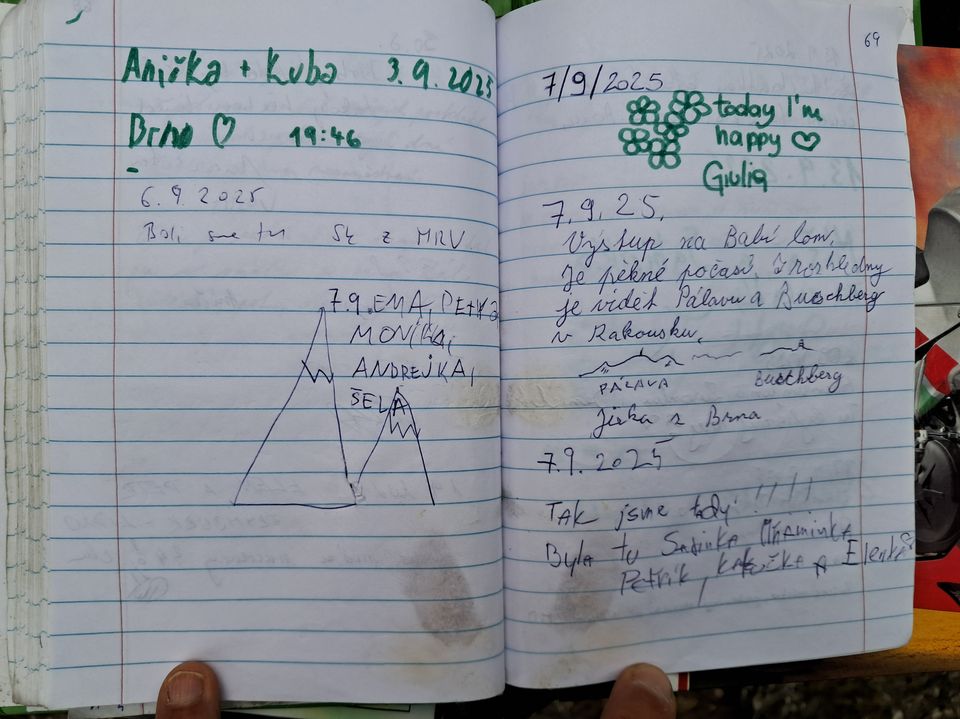 Anička + Kuba 3.9.2025
Brno ♡ 19:46
6.9.2025
Boli sme tu SK z MRV
7.9. EMA, PETKA
MONIKA,
ANDREJKA,
ŠELA
69
7/9/2025
today I'm
happy ♡
Giulia
7.9.25.
Výstup na Babí lom.
Je pěkné počasí. Z rozhledny
je vidět Pálavu a Buschberg
v Rakousku.
PÁLAVA Buschberg
Jirka z Brna
7.9.2025
TAK jsme tady !!!!
Byla tu Sašinka Maminka
Petrík, kačka A Elenka